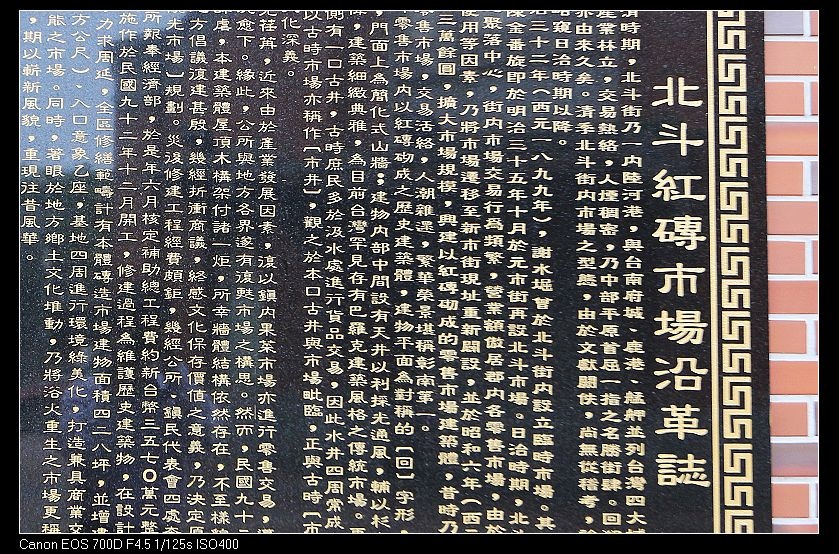 北斗紅磚市場沿革誌
清時期，北斗街乃一內陸河港，與台南府城、鹿港、艋舺並列台灣四大城
產業林立，交易熱絡，人煙稠密，乃中部平原首屈一指之名勝街肆。回溯
亦由來久矣。清季北斗街內市場之型態，由於文獻闕佚，尚無從稽考，
能窺日治時期以降。
治三十二年（西元一八九九年），謝水堀曾於北斗街內設立臨時市場。其
陳金番旋即於明治三十五年十月於元市街再設北斗市場。日治時期，北斗
聚落中心，街內市場交易行為頻繁，營業額傲居郡內各零售市場，由於
使用等因素，乃將市場遷移至新市街現址重新闢設，並於昭和六年（西
三萬餘圓，擴大市場規模，興建以紅磚砌成的零售市場建築體，昔時乃
零售市場，交易活絡，人潮雜遝，繁華榮景堪稱彰南第一。
零售市場內以紅磚砌成之歷史建築體，建物平面為對稱的「回」字形，
，門面上為簡化式山牆；建物內部中間設有天井以利採光通風，輔以杉
，建築細緻典雅，為目前台灣罕見存有巴羅克建築風格之傳統市場。
側有一口古井，古時庶民多於汲水處進行貨品交易，因此水井四周常成
以古時市場亦稱作「市井」，觀之於本口古井與市場毗臨，正與古時「市
化深義。
光荏苒，近來由於產業發展因素，復以鎮內果菜市場亦進行零售交易，
況愈下。緣此，公所與地方各界遂有復甦市場之構思。然而，民國九十二
肆虐，本建築體屋頂木構架付諸一炬，所幸牆體結構依然存在，不至樣
地方倡議復建甚殷，幾經折衝商議，終感文化保存價值之意義，乃決定原
光市場」規劃。災後修建工程經費頗鉅，幾經公所、鎮民代表會四處奔
所報奉經濟部，於是年六月核定補助總工程費約新台幣三五七０萬元整
施作於民國九十三年十二月開工，修建過程為維護歷史建築物，在設計
力求周延，全區修繕範疇計有本體磚造市場建物面積四二八坪，並增建
方公尺）、入口意象乙座，基地四周進行環境綠美化，打造兼具商業交
能之市場。同時，著眼於地方鄉土文化推動，乃將浴火重生之市場更稱
，期以嶄新風貌，重現往昔風華。
Canon EOS 700D F4.5 1/125s ISO400